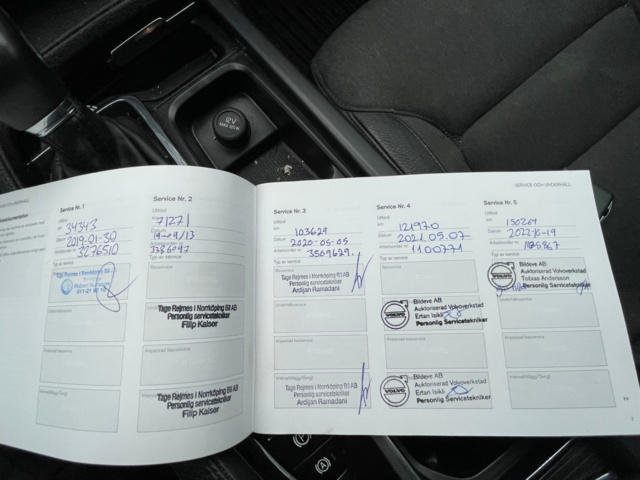 12V
MAX 120W
SERVICE OCH UNDERHÅLL
Service Nr. 1
Utförd
km 34343
Datum 2019-01-30
3276510
Tage Rejmes i Norrköping Bil
Service Nr. 2
Utförd
71271
19-09/13
Typ av service
Tage Rejmes i Norrköping Bil AB
Personlig servicetekniker
Filip Kaiser
Tage Rejmes i Norrköping Bil AB
Personlig servicetekniker
Filip Kaiser
Service Nr. 3
Utförd
km 103629
Datum 2020-05-05
Arbetsorder nr 3509629
Typ av service
Tage Rejmes i Norrköping Bil AB
Personlig servicetekniker
Ardijan Ramadani
Tage Rejmes i Norrköping Bil AB
Personlig servicetekniker
Ardijan Ramadani
Service Nr. 4
Utförd
km 121970
Datum 2021.05.07
Arbetsorder nr 1100771
Typ av service
VOLVO
Bildeve AB
Auktoriserad Volvoverkstad
Ertan Isikli
Personlig Servicetekniker
VOLVO
Bildeve AB
Auktoriserad Volvoverkstad
Ertan Isikli
Personlig Servicetekniker
Service Nr. 5
Utförd
km 150264
Datum
Arbetsorder nr 1185867
Typ av service
VOLVO
Bildeve AB
Auktoriserad Volvoverkstad
Tobias Andersson
Personlig Servicetekniker